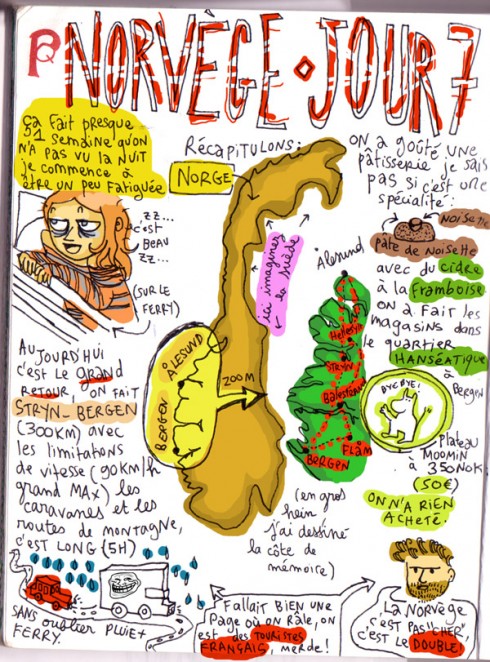 NORVÈGE • JOUR 7
ça fait presque
1 semaine qu'on
n'a pas vu la nuit
je commence à
être un peu fatiguée
zz...
c'est
BEAU
zz...
(SUR LE
FERRY)
Récapitulons:
NORGE
ici imaginez
la suède
ÅLESUND
BERGEN
ZOOM
Ålesund
Hellesylt
STRYN
Balestrand
FLÅM
BERGEN
(en gros
hein
j'ai dessiné
la côte de
mémoire)
ON a goûté UNE
pâtisserie je sais
pas si c'est une
spécialité:
NOISETTE
pâte de Noisette
avec du cidre
à la framboise
ON a fait les
magasins dans
le quartier
HANSÉATIQUE
à
Bergen
BYE BYE!
Plateau
MOOMIN
à 350NOK
(50€)
ON N'A RIEN
ACHETÉ.
AUJOURD'HUI
c'est le GRAND
RETOUR ON fait
STRYN-BERGEN
(300km) avec
les limitations
de vitesse (90km/h
grand MAX) les
caravanes et les
routes de montagne,
c'est LONG (5H)
SANS oublier PLUIE +
FERRY.
Fallait BIEN UNE
Page où ON Râle, on
est des TOURISTES
FRANÇAIS, merde!
LA NORVÈGE
c'est PAS "CHER",
c'est le DOUBLE!